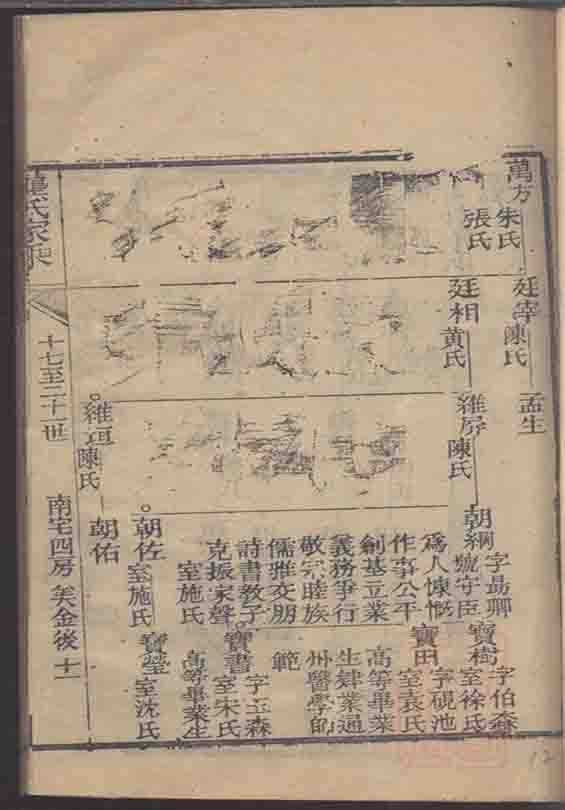 萬方
朱氏
張氏
廷宰陳氏
廷相
黄氏
孟生
維屏
陳氏
維垣陳氏
朝綱
字昜卿
號守臣
為人慷慨
作事公平
創基立業
義務爭行
敬宗睦族
儒雅交朋
詩書教子
克振家聲
室施氏
朝佐
室施氏
朝佑
寶樹
字伯森
室徐氏
寶田
字硯池
室袁氏
高等畢業
生肄業通
州醫學師
範
寶書
字玉森
室宋氏
高等畢業生
寶瑩
室沈氏
氏家乘
十七至二十一世 南宅四房 美金後 十一
12